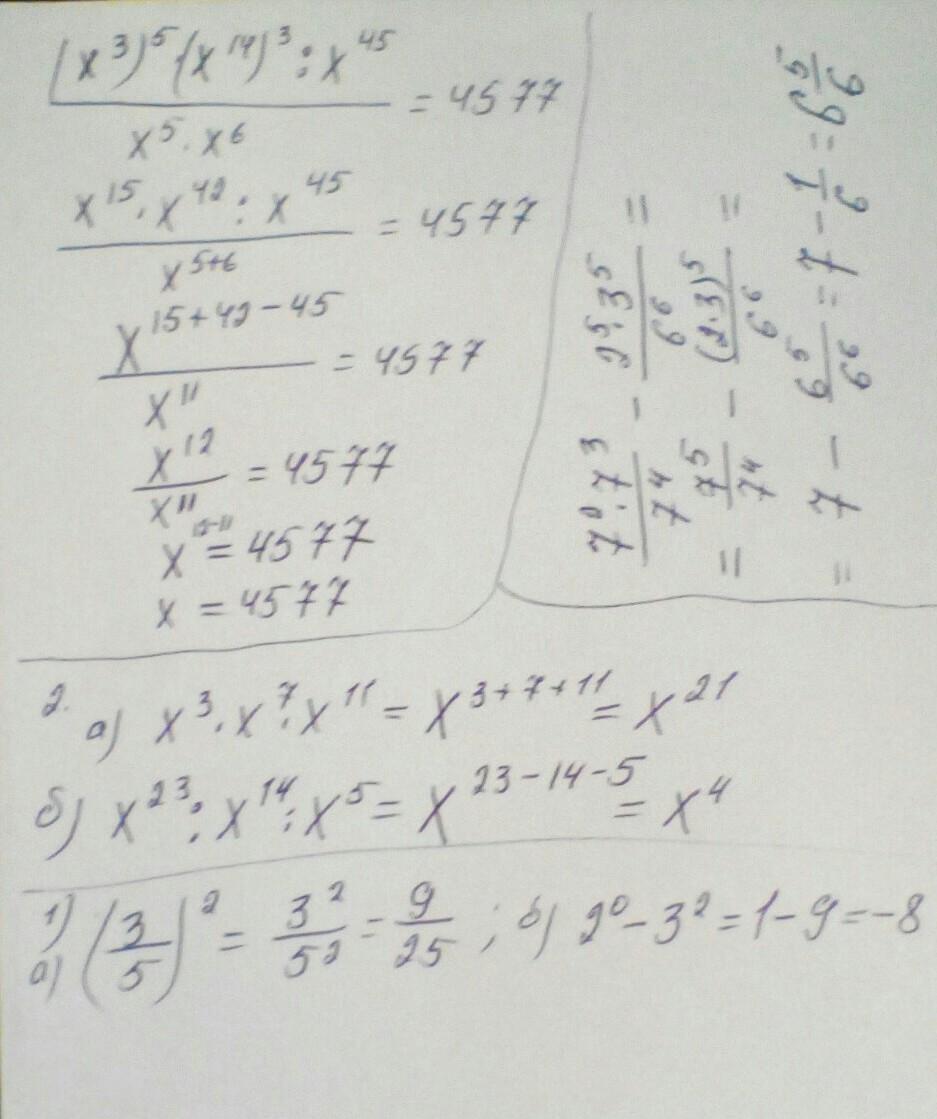 (x³)⁵·(x¹⁴)³ : x⁴⁵ / x⁵·x⁶ = 4577
x¹⁵·x⁴² : x⁴⁵ / x⁵⁺⁶ = 4577
x¹⁵⁺⁴²⁻⁴⁵ / x¹¹ = 4577
x¹² / x¹¹ = 4577
x¹²⁻¹¹ = 4577
x = 4577
7²·7³ / 7⁴ − 2⁵·3⁵ / 6⁶ =
= 7⁵ / 7⁴ − (2·3)⁵ / 6⁶ =
= 7 − 6⁵ / 6⁶ = 7 − 1/6 = 6 5/6
2. а) x³·x⁷·x¹¹ = x³⁺⁷⁺¹¹ = x²¹
б) x²³ : x¹⁴ : x⁵ = x²³⁻¹⁴⁻⁵ = x⁴
1) а) (3/5)² = 3²/5² = 9/25 ; б) 2⁰ − 3² = 1 − 9 = −8